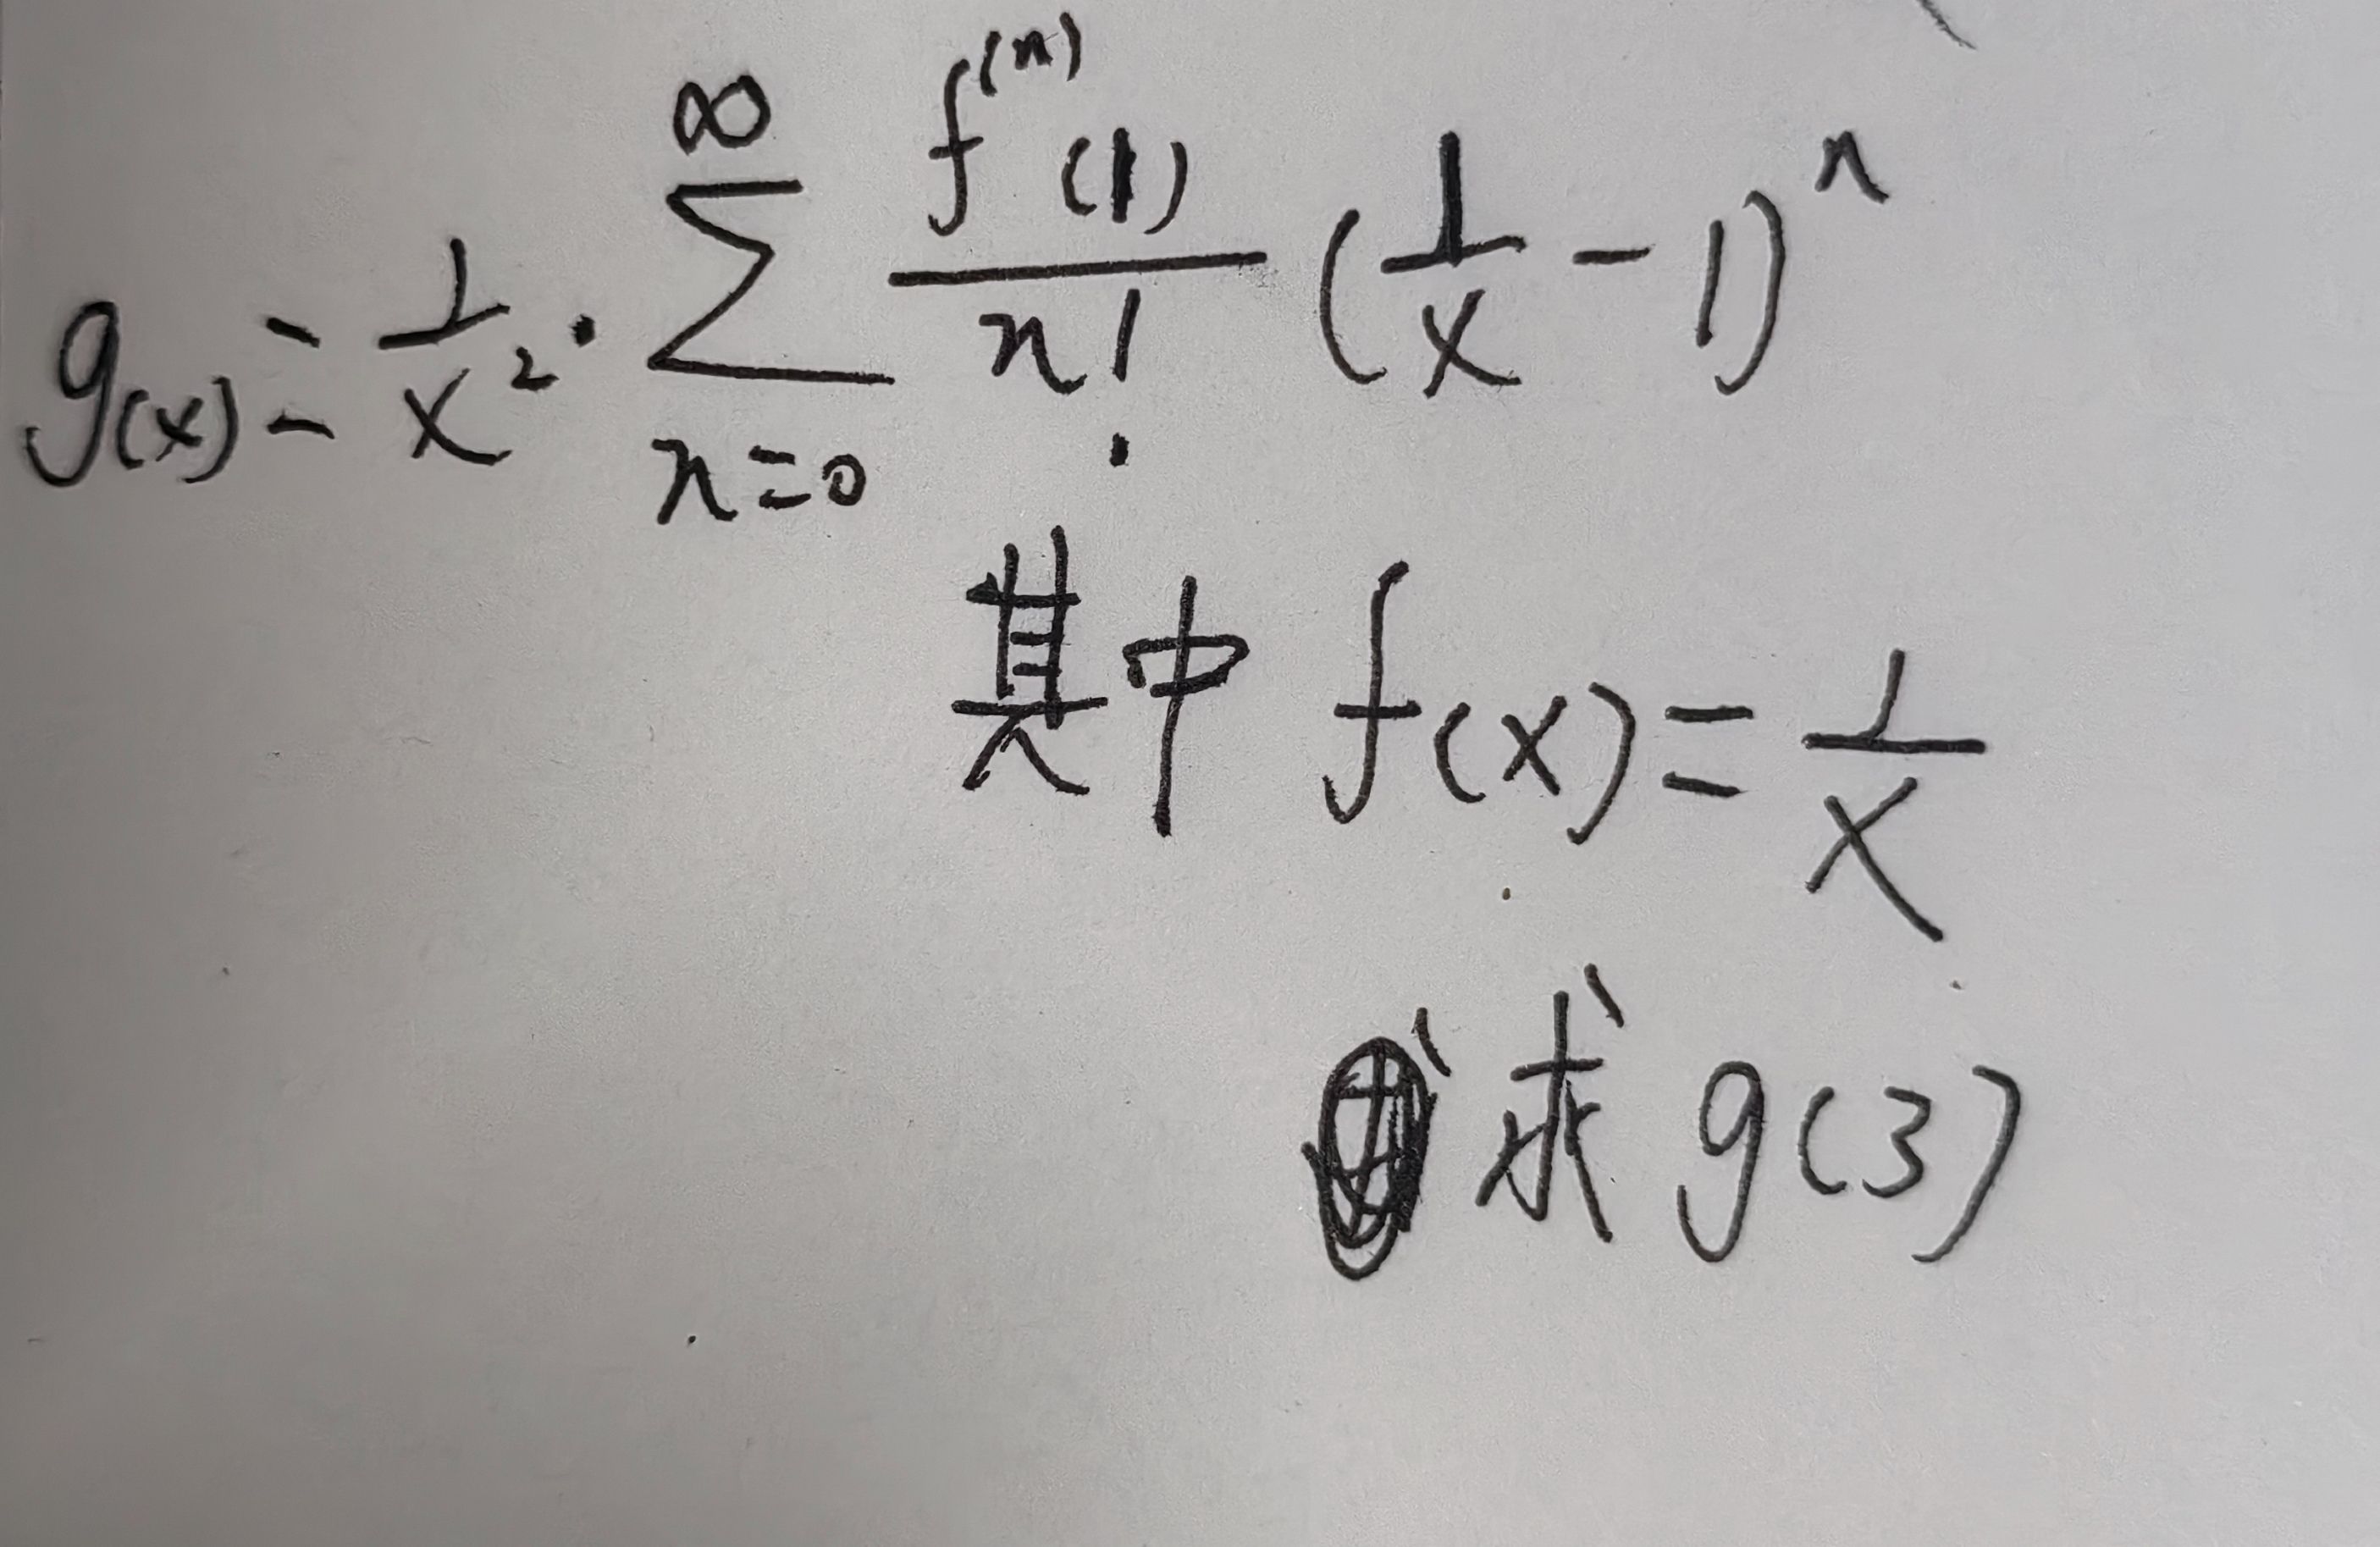 g(x) = \frac{1}{x^2} \cdot \sum_{n=0}^{\infty} \frac{f^{(n)}(1)}{n!} (\frac{1}{x} - 1)^n
其中 f(x) = \frac{1}{x}
求 g(3)